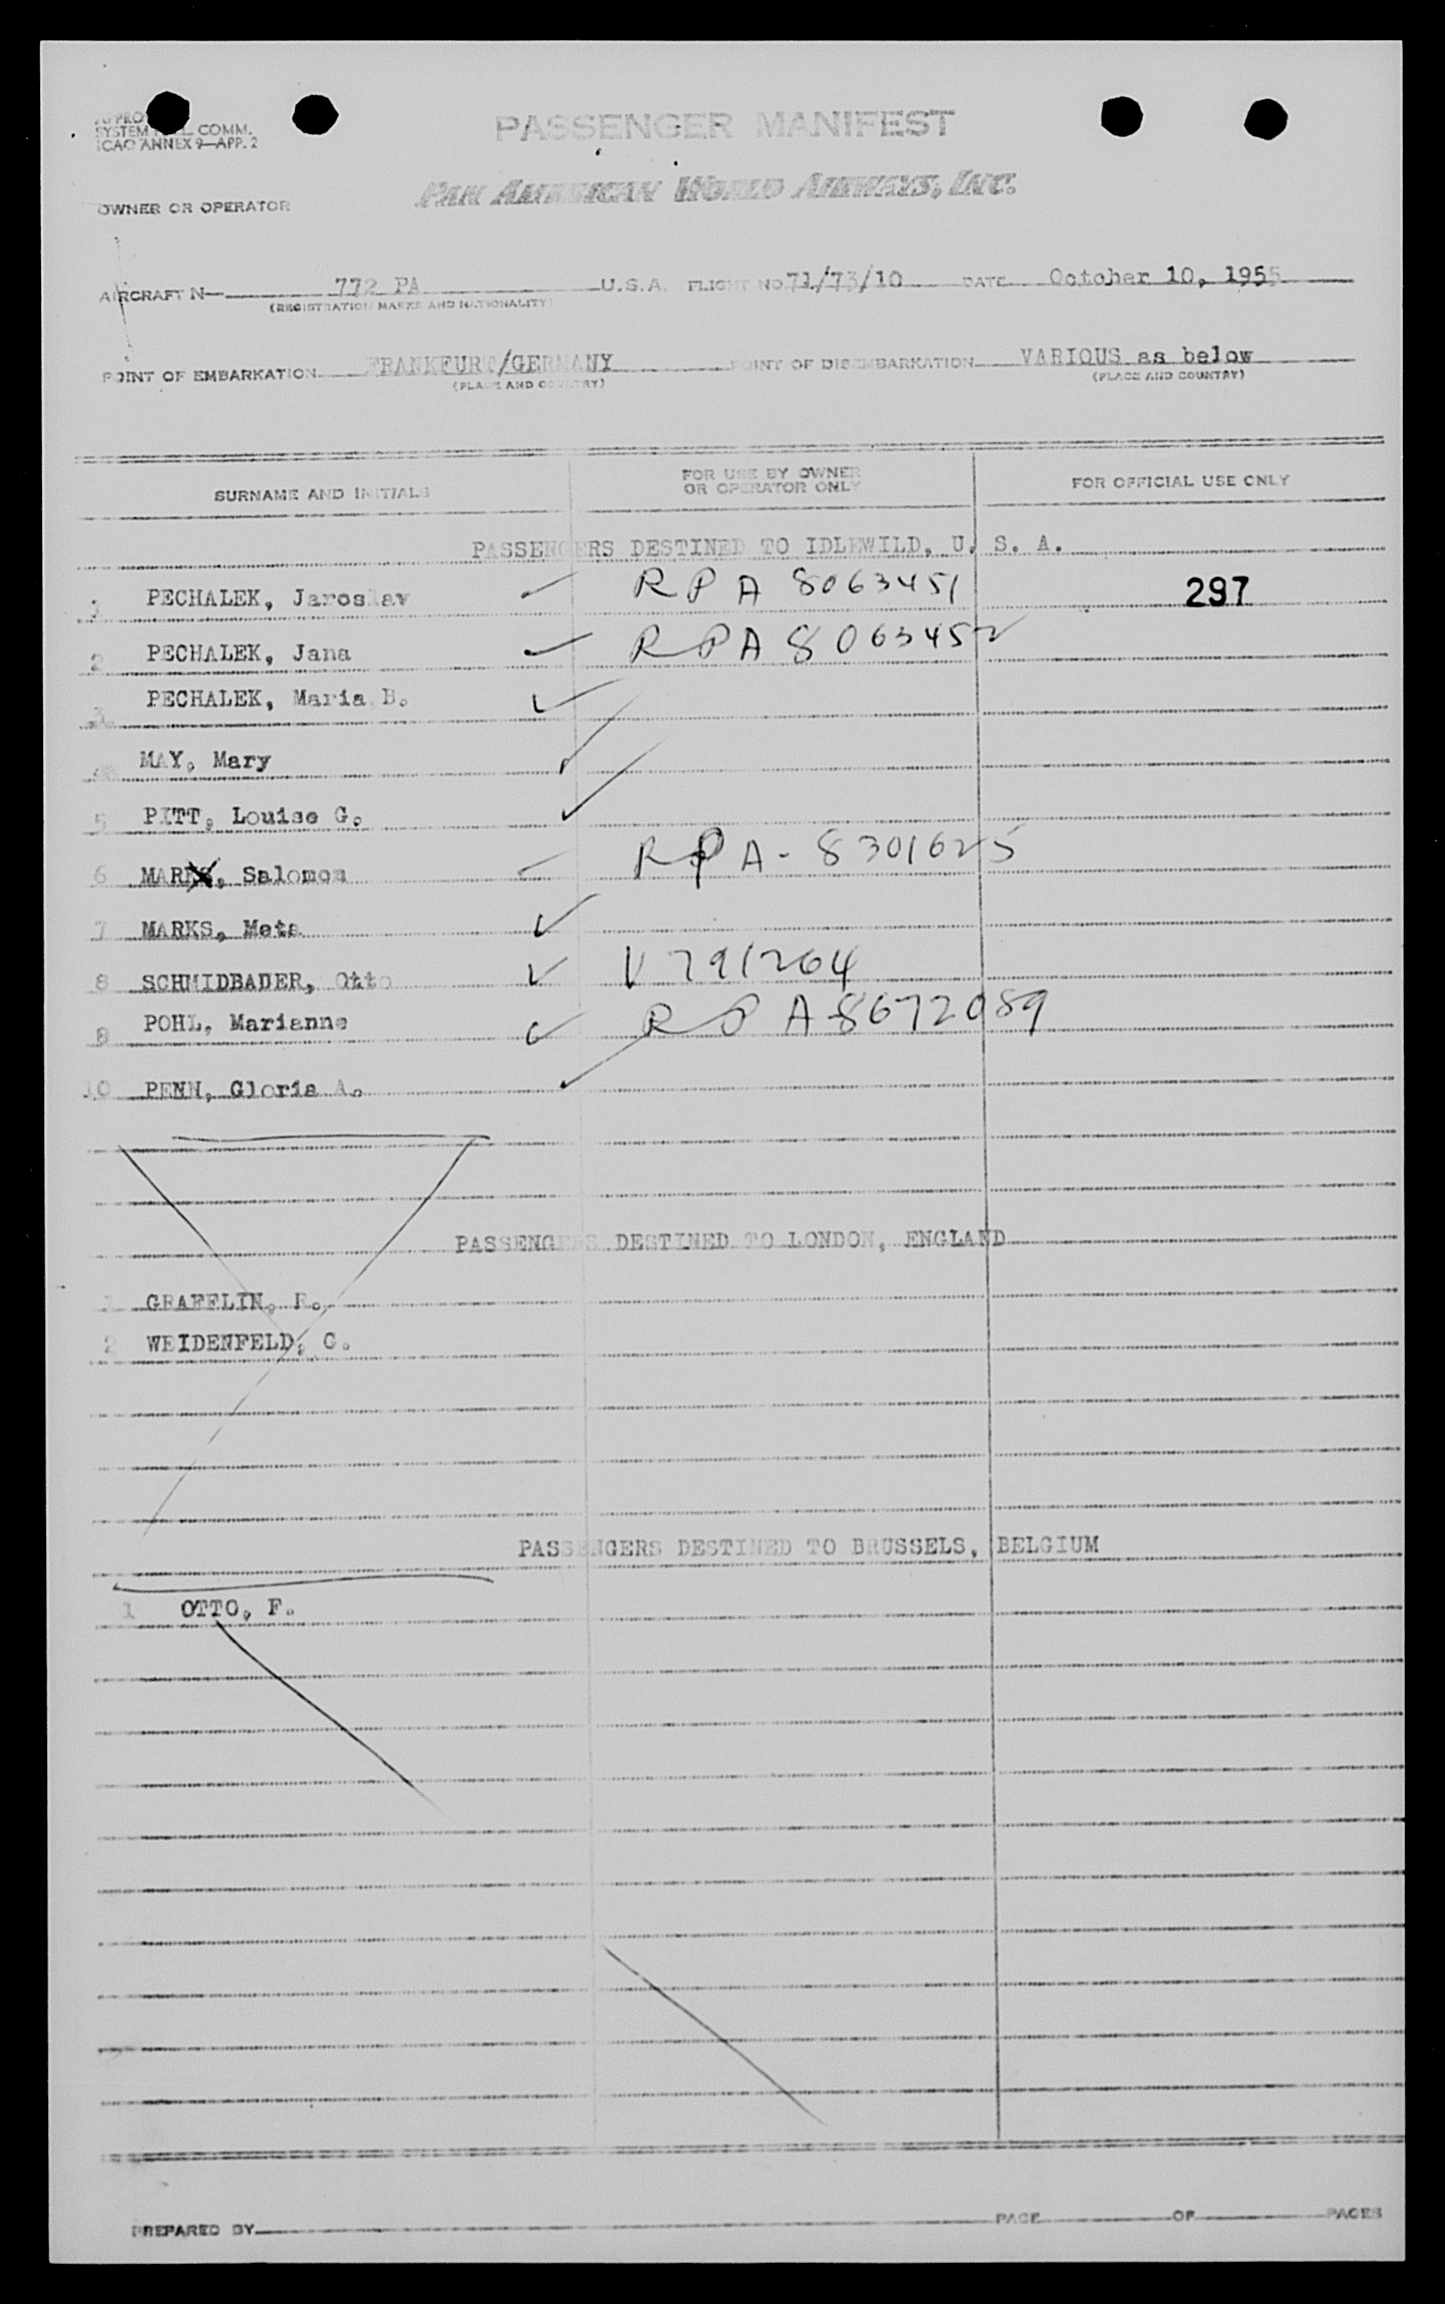 SYSTEM COMM.
ICAO ANNEX 9—APP. 2
PASSENGER MANIFEST
PAN AMERICAN WORLD AIRWAYS, INC.
OWNER OR OPERATOR
AIRCRAFT N— 772 PA U.S.A. FLIGHT NO 71/73/10 DATE October 10, 1955
(REGISTRATION MARKS AND NATIONALITY)
POINT OF EMBARKATION FRANKFURT/GERMANY POINT OF DISEMBARKATION VARIOUS as below
(PLACE AND COUNTRY) (PLACE AND COUNTRY)
SURNAME AND INITIALS FOR USE BY OWNER OR OPERATOR ONLY FOR OFFICIAL USE ONLY
PASSENGERS DESTINED TO IDLEWILD, U. S. A.
1 PECHALEK, Jaroslav RPA 8063451 297
2 PECHALEK, Jana RPA 8063452
3 PECHALEK, Maria B.
MAY, Mary
5 PITT, Louise G.
6 MARKS, Salomon RPA-8301625
7 MARKS, Meta
8 SCHMIDBADER, Otto V791264
9 POHL, Marianne RPA 8672089
10 PENN, Gloria A.
PASSENGERS DESTINED TO LONDON, ENGLAND
1 GRAFFLIN,
2 WEIDENFELD, G.
PASSENGERS DESTINED TO BRUSSELS, BELGIUM
1 OTTO, F.
PREPARED BY PAGE OF PAGES